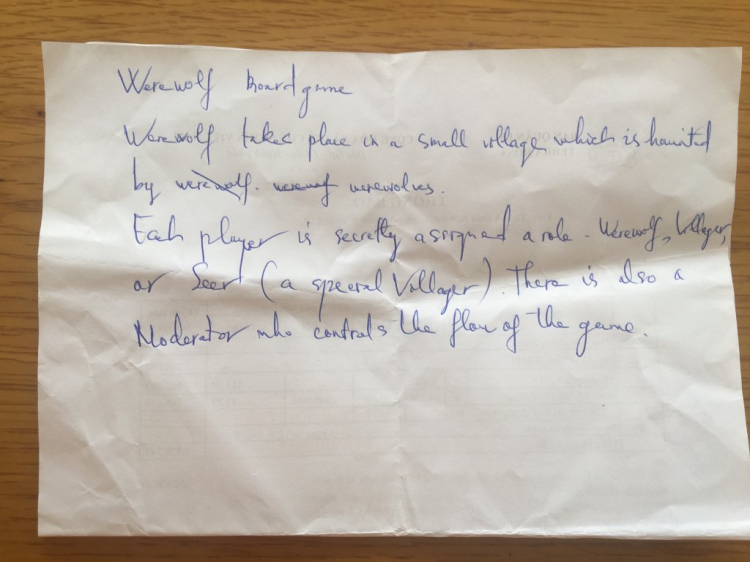 Werewolf Board game
Werewolf takes place in a small village which is haunted
by werewolf. werewolf werewolves.
Each player is secretly assigned a role - Werewolf, Villager,
or Seer (a special Villager). There is also a
Moderator who controls the flow of the game.